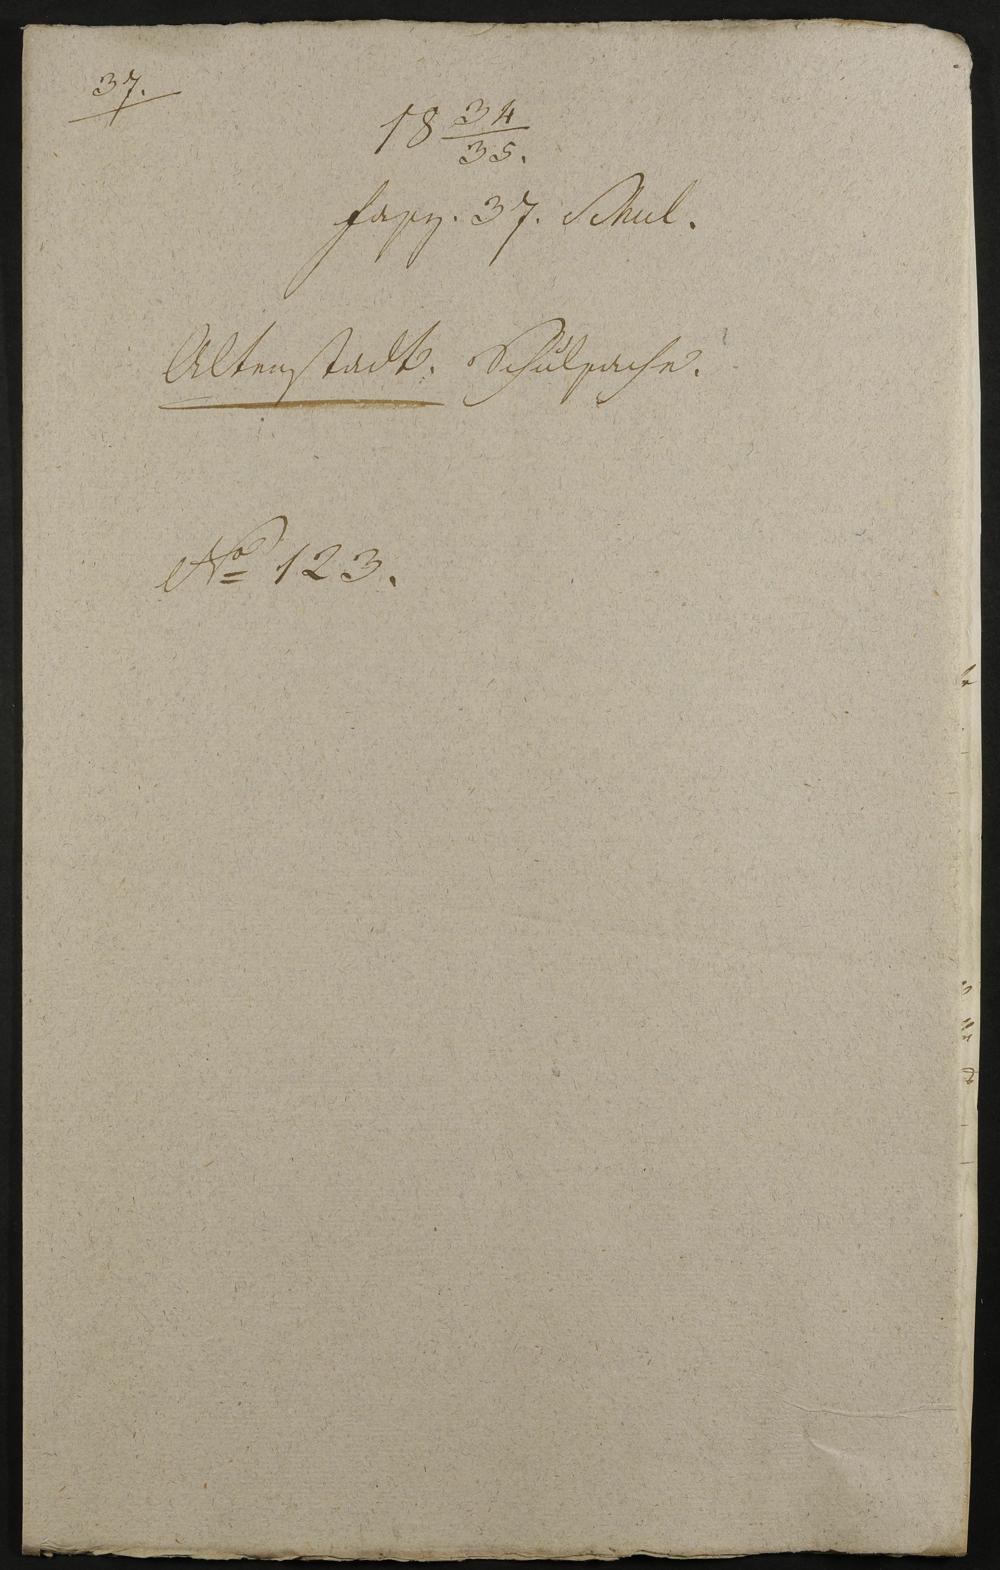 37.
18 34/35.
fasz. 37. Schul.
Altenstadt. Schulsache.
No 123.